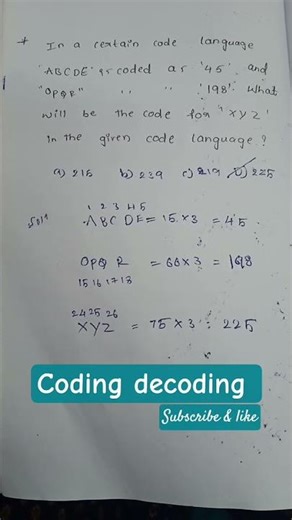 * In a certain code language
'ABCDE' is coded as '45' and
"OPQR" " " '198'. What
will be the code for 'XYZ'
in the given code language?
a) 215 b) 239 c) 219 d) 225
1 2 3 4 5
ABCDE = 15 × 3 = 45
OPQ R = 66 × 3 = 198
15 16 17 18
24 25 26
XYZ = 75 × 3 = 225
Coding decoding
Subscribe & like